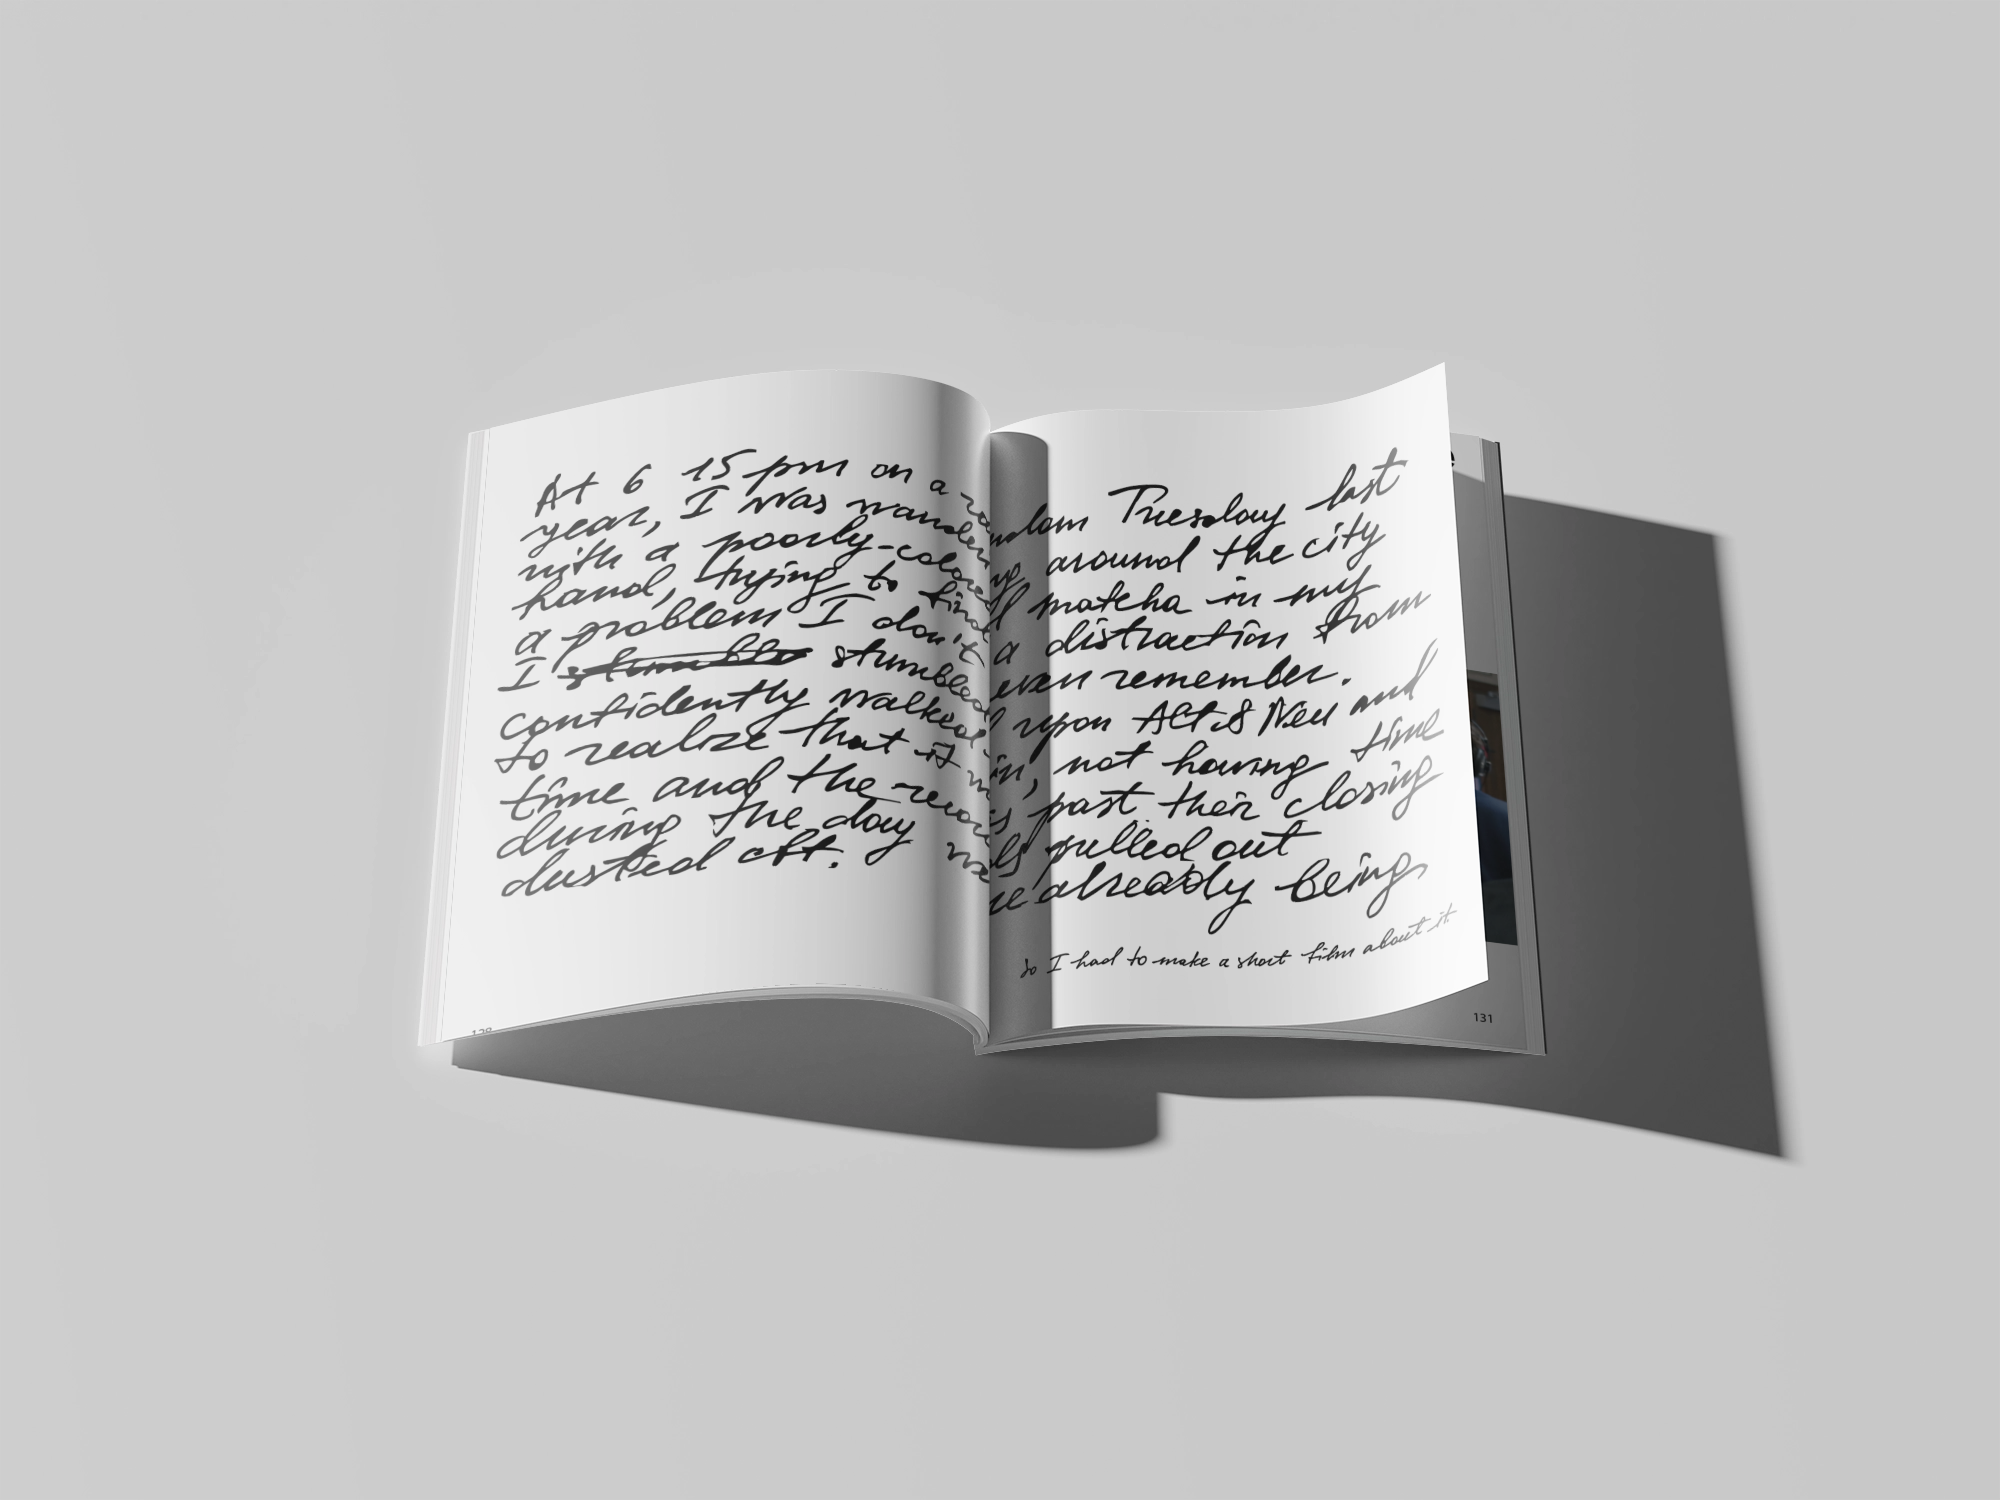 At 6 15 pm on a random Tuesday last
year, I was wandering around the city
with a poorly-colored matcha in my
hand, trying to find a distraction from
a problem I don't even remember.
I stumble stumbled upon Alt & Neu and
confidently walked in, not having time
to realize that it was past their closing
time and the records pulled out
during the day were already being
dusted off.
so I had to make a short film about it
131